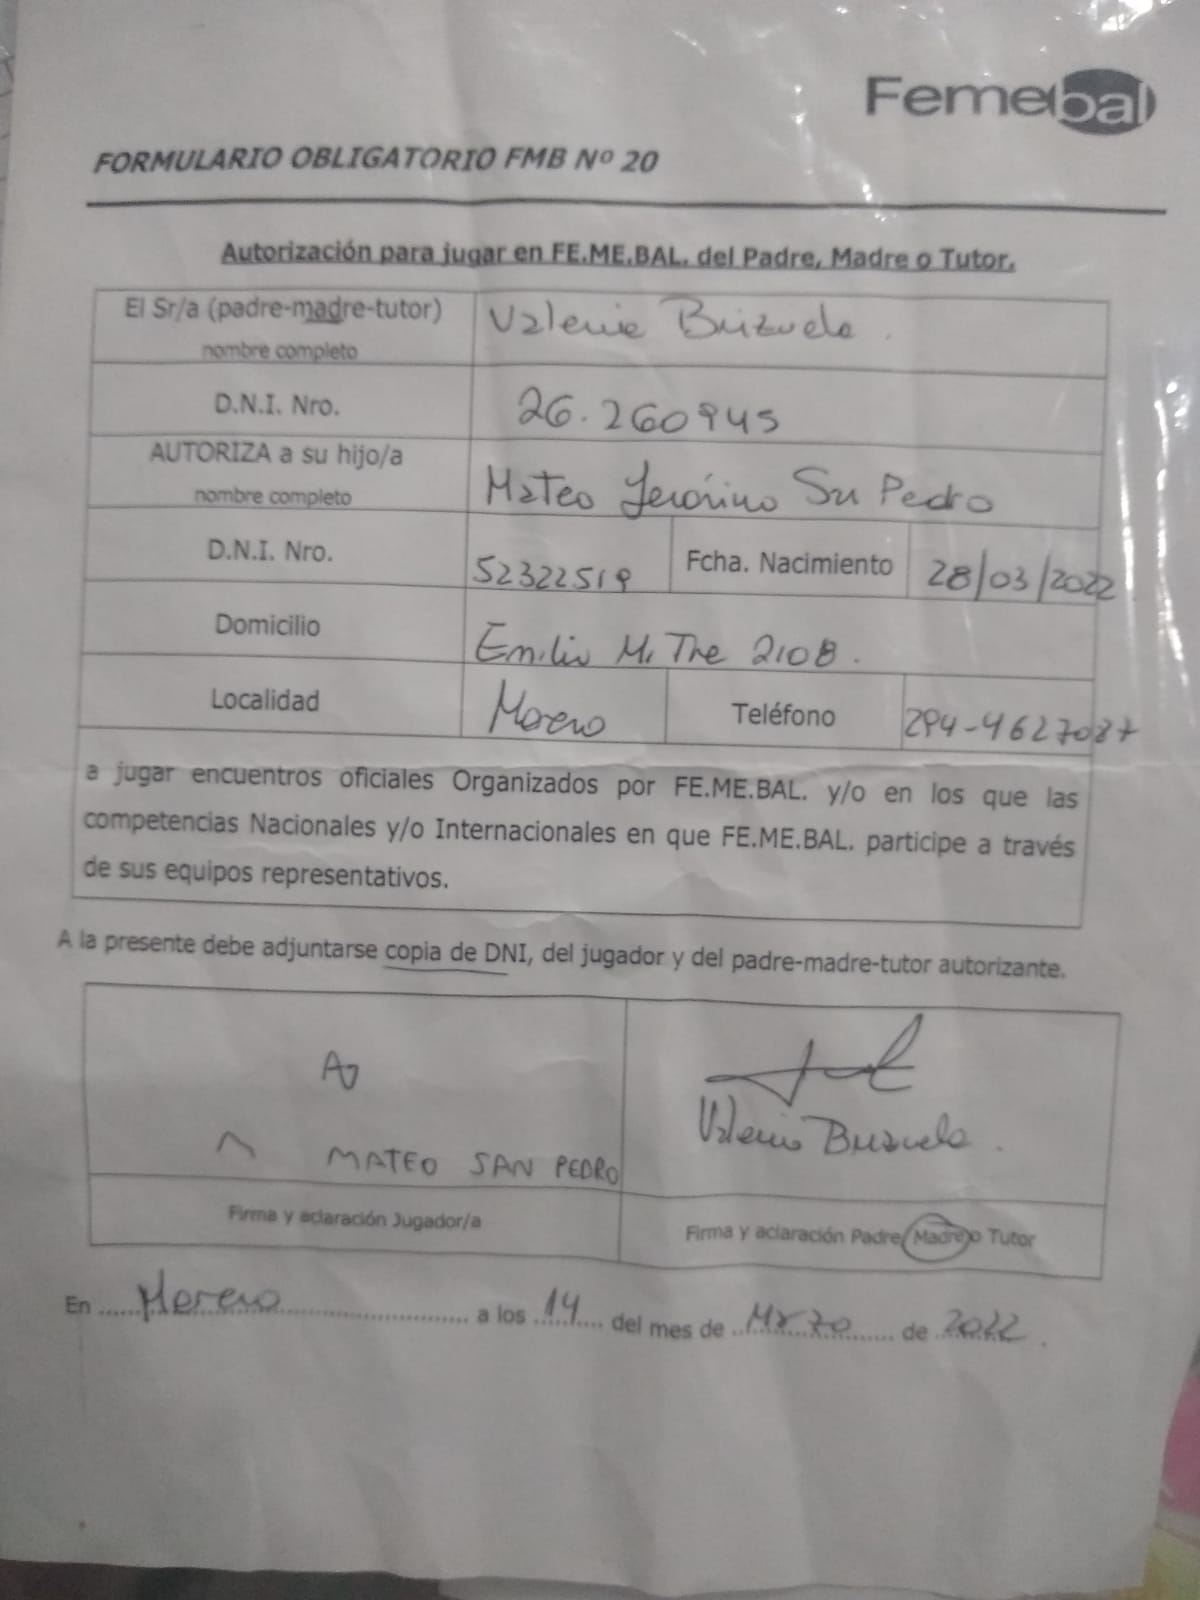 Femebal
FORMULARIO OBLIGATORIO FMB Nº 20
Autorización para jugar en FE.ME.BAL. del Padre, Madre o Tutor.
El Sr/a (padre-madre-tutor) nombre completo Valeria Brizuela.
D.N.I. Nro. 26.260945
AUTORIZA a su hijo/a nombre completo Mateo Jerónimo San Pedro
D.N.I. Nro. 52322519 Fcha. Nacimiento 28/03/2022
Domicilio Emilio Mitre 2108.
Localidad Moreno Teléfono 294-4627087
a jugar encuentros oficiales Organizados por FE.ME.BAL. y/o en los que las
competencias Nacionales y/o Internacionales en que FE.ME.BAL. participe a través
de sus equipos representativos.
A la presente debe adjuntarse copia de DNI, del jugador y del padre-madre-tutor autorizante.
MATEO SAN PEDRO
Valeria Brizuela.
Firma y aclaración Jugador/a
Firma y aclaración Padre/Madre/o Tutor
En Moreno a los 14 del mes de Marzo de 2022.